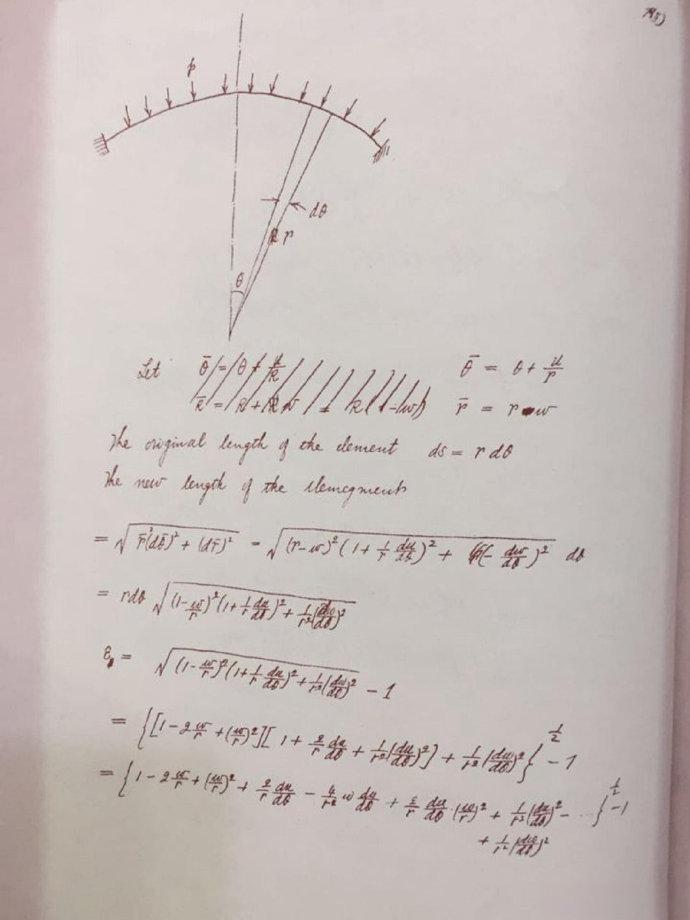 p
dθ
r
θ
Let θ̄ = θ + u/r
r̄ = r - w
The original length of the element ds = r dθ
The new length of the
= √( r̄²(dθ̄)² + (dr̄)² ) = √( (r-w)² (1 + 1/r du/dθ)² + (- dw/dθ)² ) dθ
= rdθ √( (1-w/r)² (1+1/r du/dθ)² + 1/r² (dw/dθ)² )
ε = √( (1-w/r)² (1+1/r du/dθ)² + 1/r² (dw/dθ)² ) - 1
= { [1-2 w/r + (w/r)²][ 1 + 2/r du/dθ + 1/r² (du/dθ)²] + 1/r² (dw/dθ)² }^(1/2) - 1
= { 1-2 w/r + (w/r)² + 2/r du/dθ - 4/r² w du/dθ + 2/r du/dθ (w/r)² + 1/r² (du/dθ)² - ... }^(1/2) - 1
+ 1/r² (dw/dθ)²